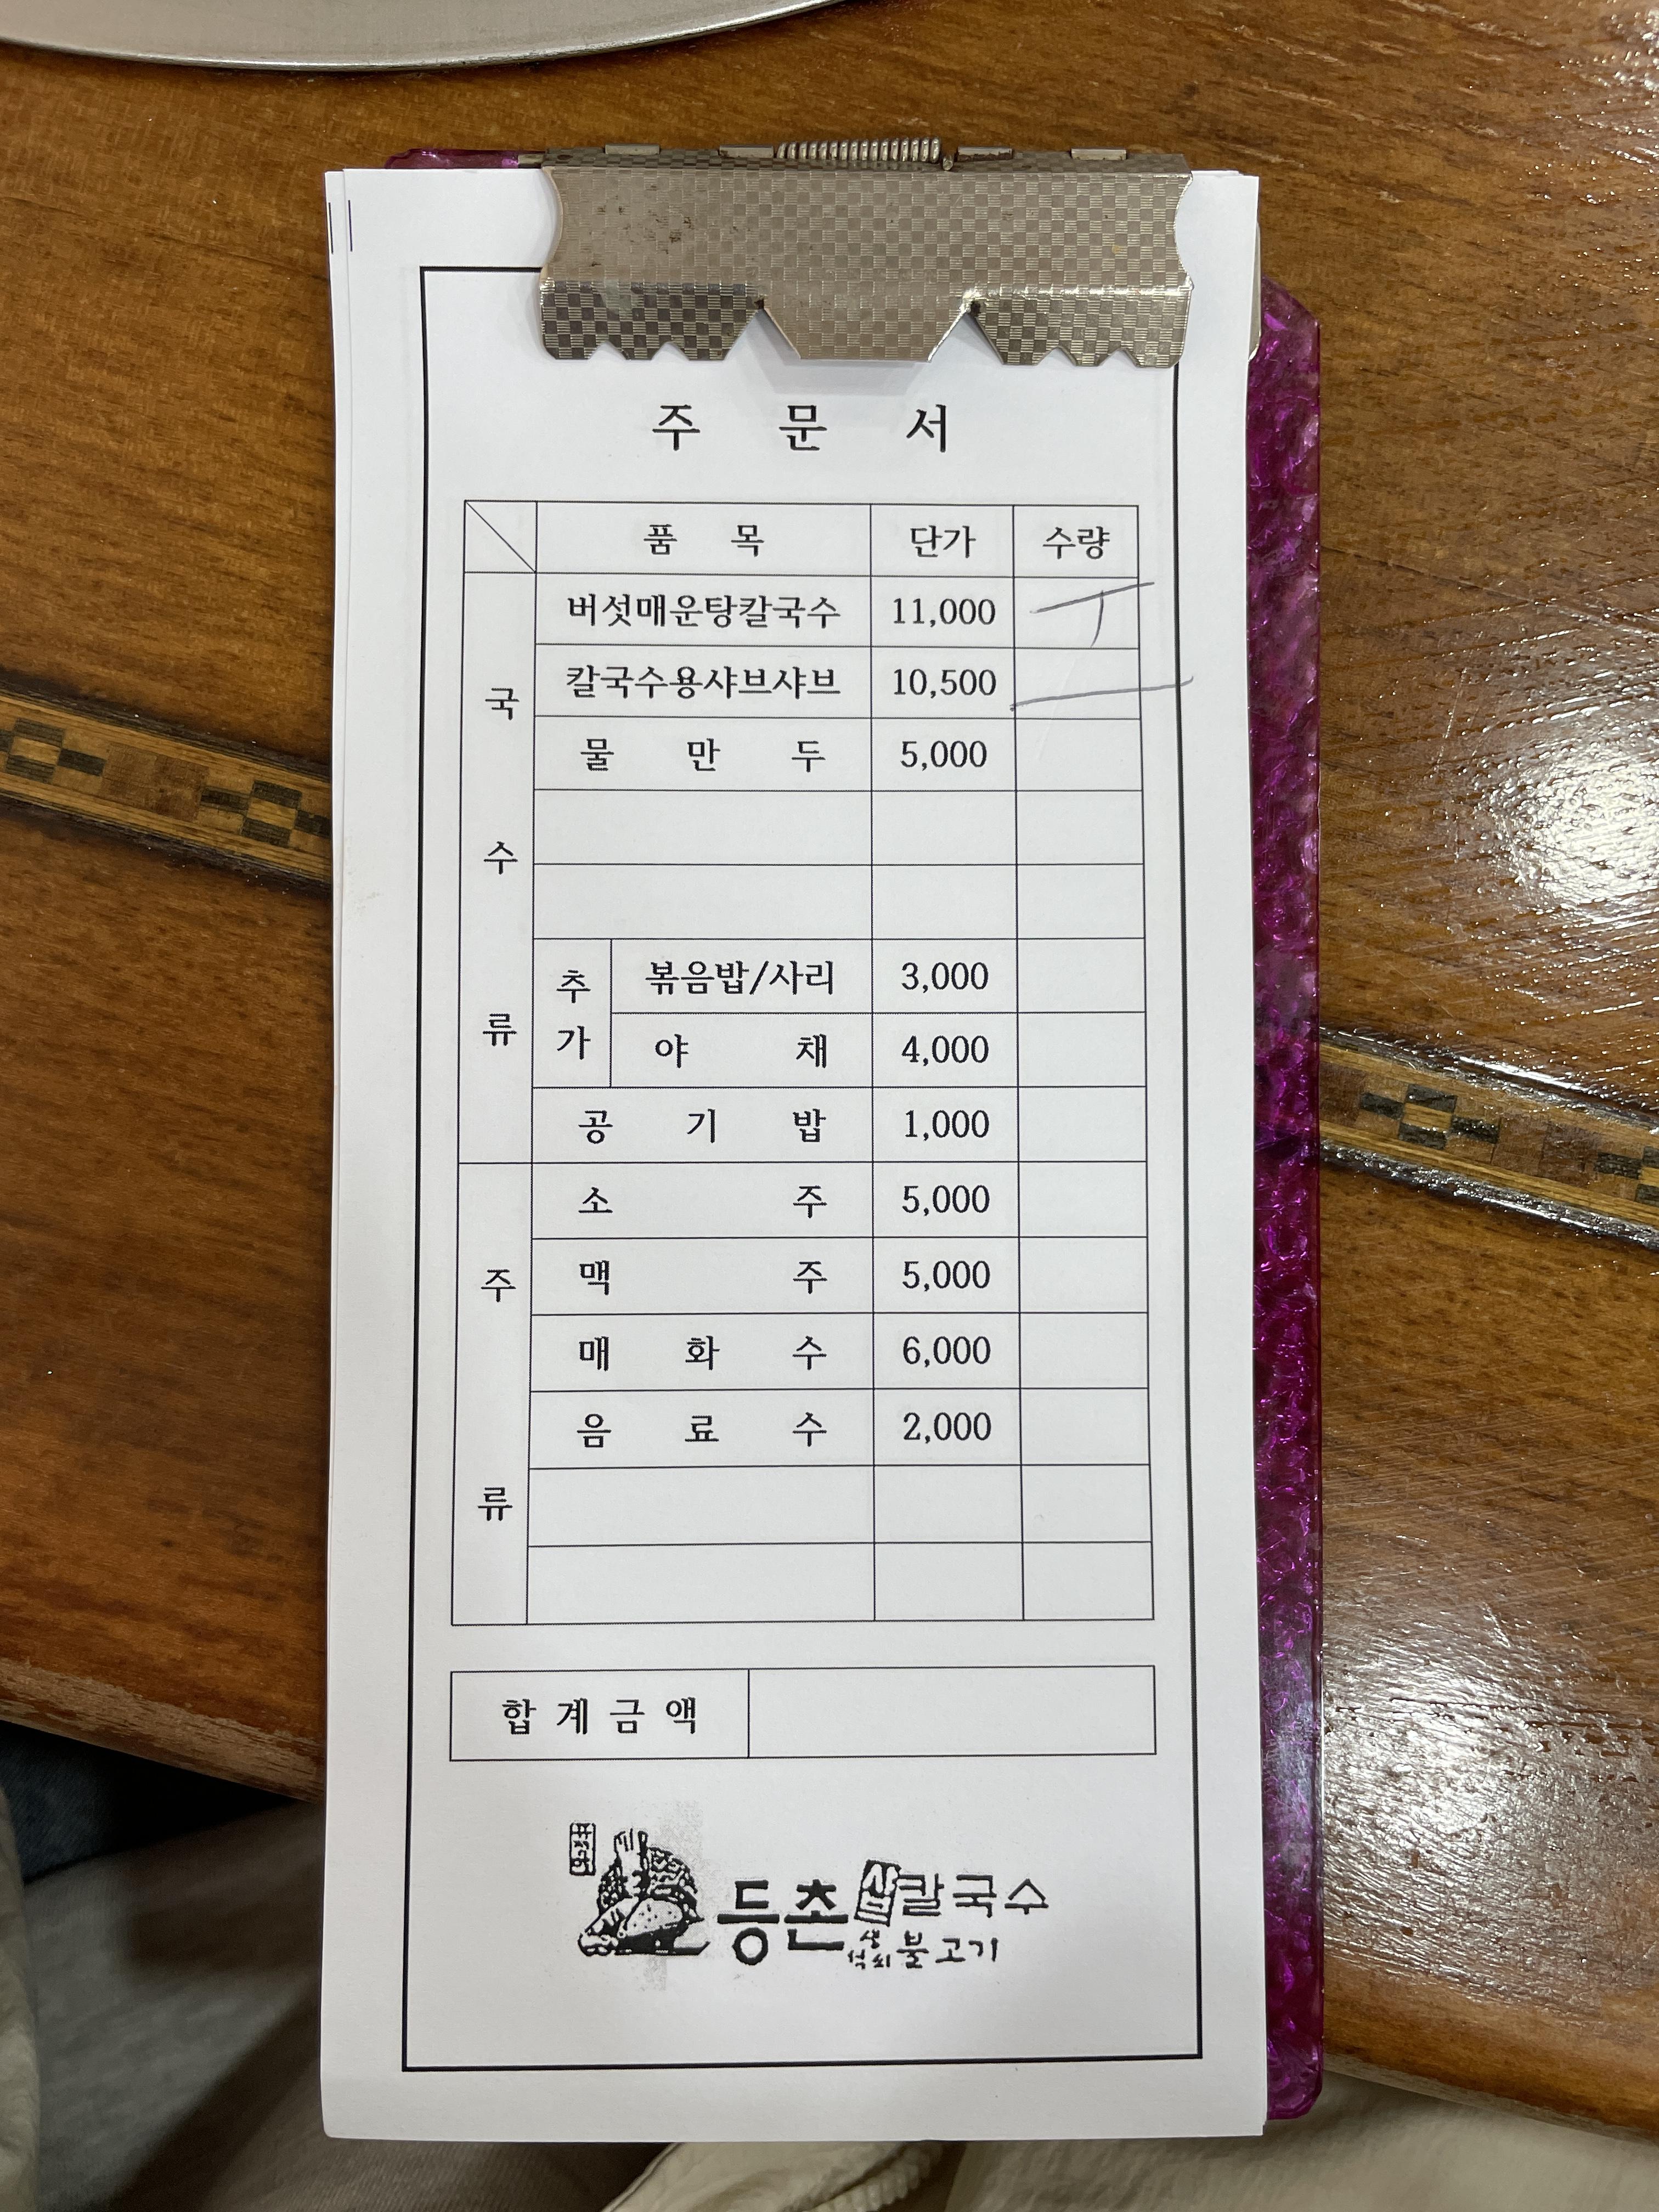 주 문 서
품 목 단가 수량
국 수 류
버섯매운탕칼국수 11,000 丅
칼국수용샤브샤브 10,500 一
물 만 두 5,000
추 가
볶음밥/사리 3,000
야 채 4,000
공 기 밥 1,000
주 류
소 주 5,000
맥 주 5,000
매 화 수 6,000
음 료 수 2,000
합 계 금 액
등촌 샤브 칼국수
생 석쇠 불고기